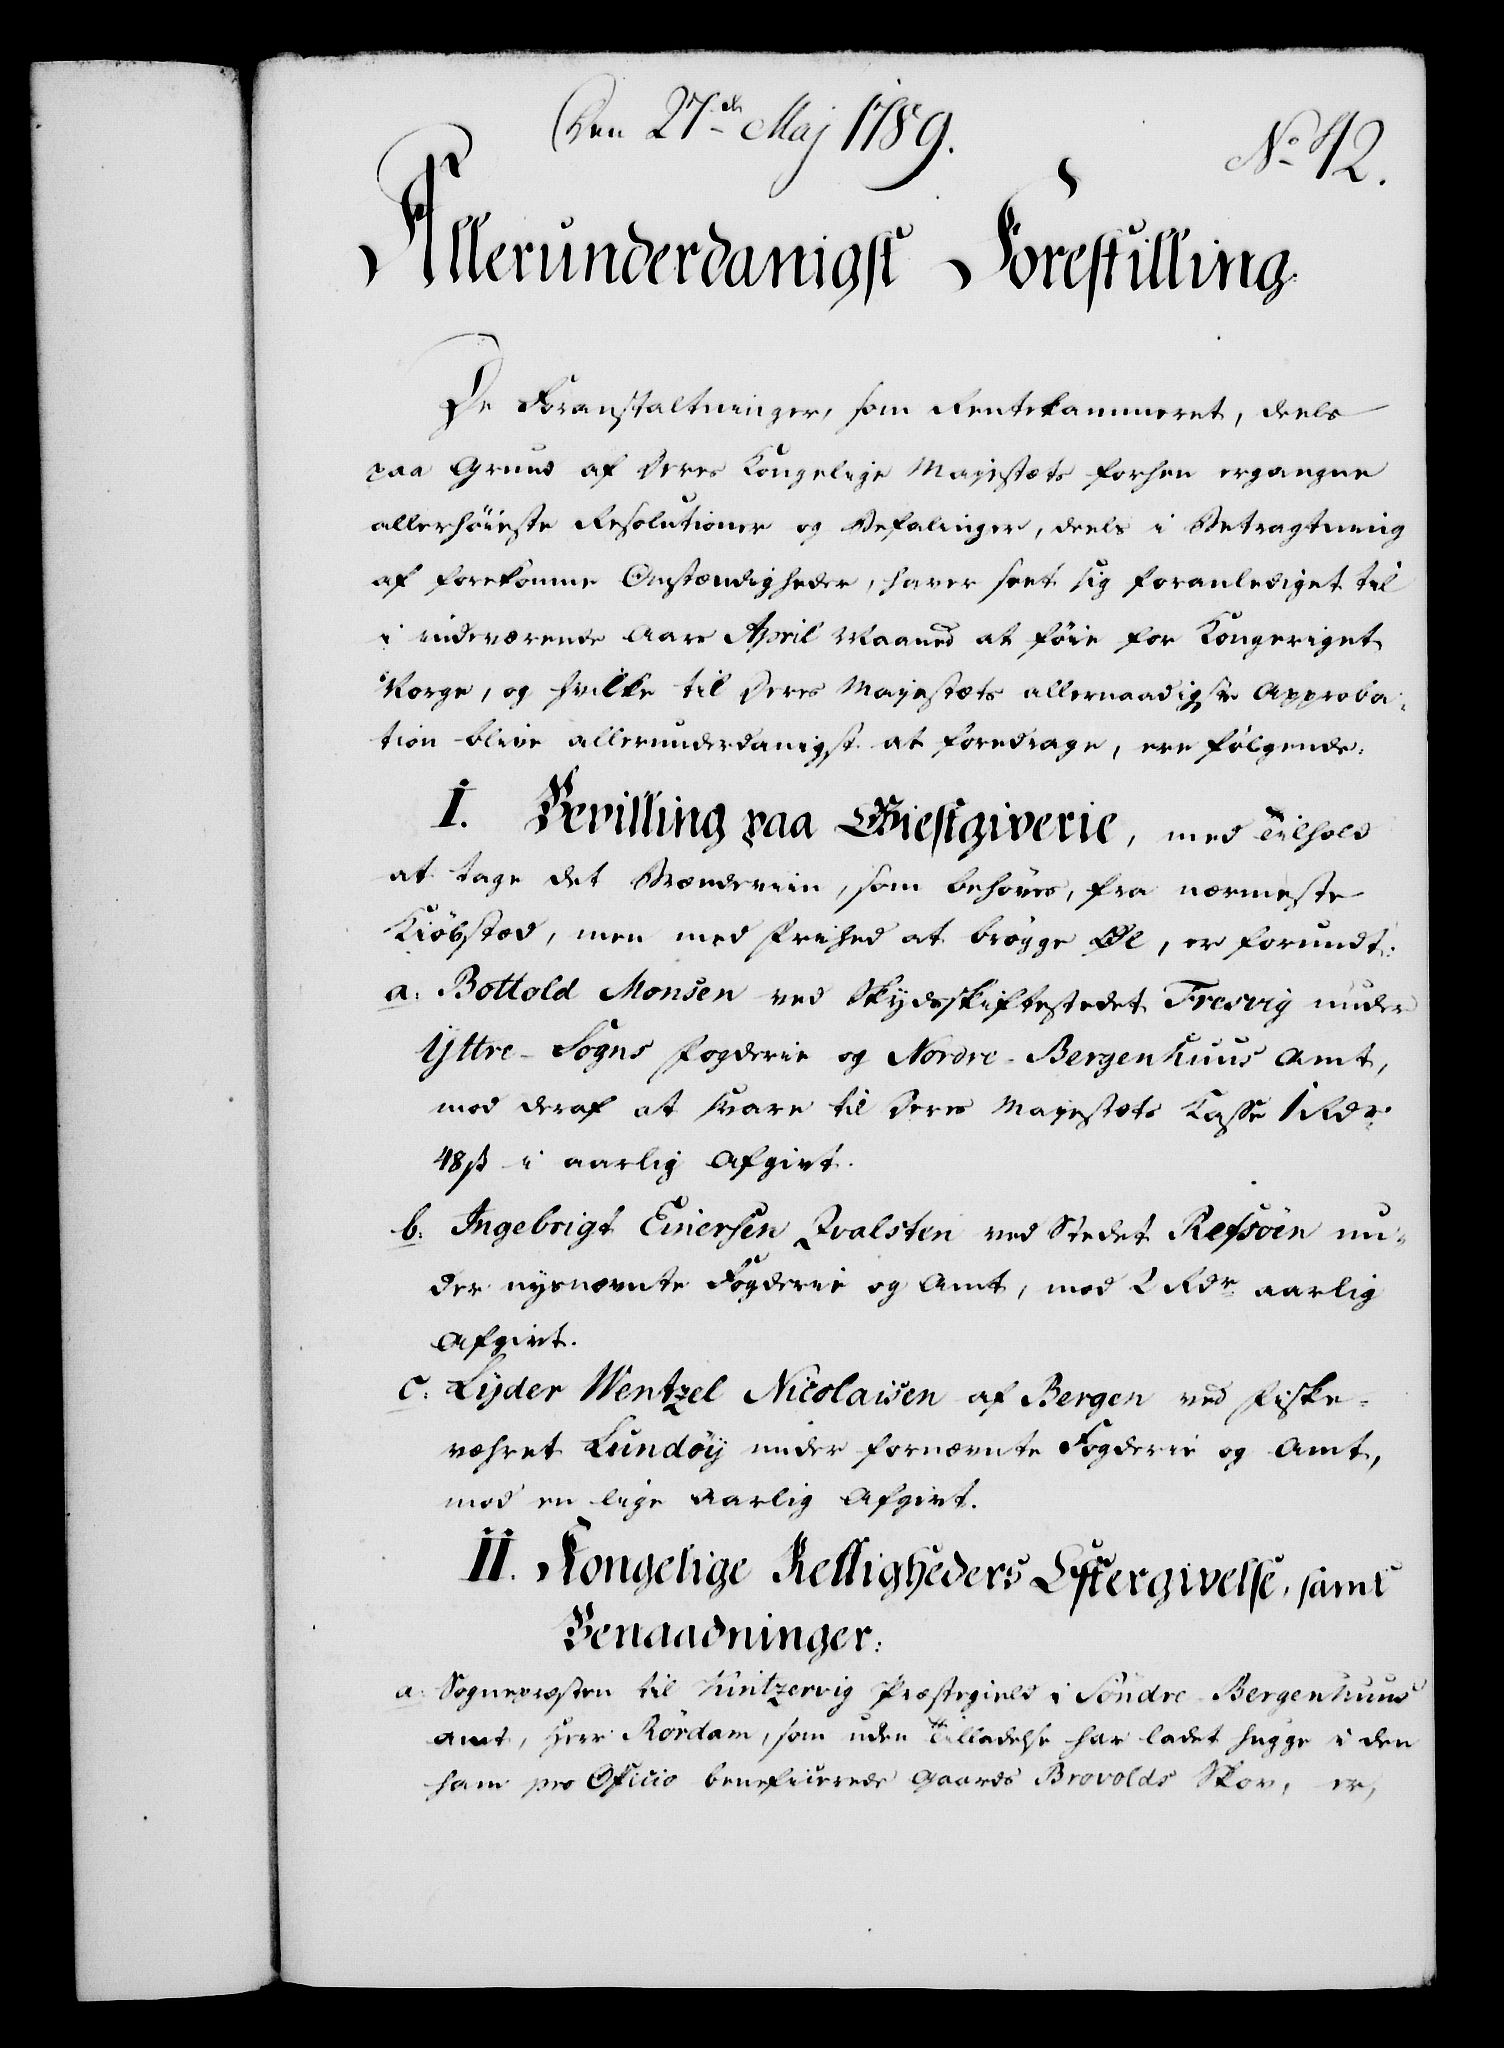 Den 27de Maj 1789.
No 42.
Allerunderdanigst Forestilling.
De Foranstaltninger, som Rentekammeret, deels
paa Grund af Deres Kongelige Majestæts forhen ergangne
allerhöieste Resolutioner og Befalinger, deels i Betragtning
af forekomne Omstændigheder, haver seet sig foranlediget til
i indeværende Aars April Maaned at föie for Kongeriget
Norge, og hvilke til Deres Majestæts allernaadigste Approba-
tion blive allerunderdanigst at foredrage, ere fölgende:
I. Bevilling paa Giestgiverie, med Tilhold
at tage det Brændeviin, som behöves, fra nærmeste
Kiöbstæd, men med Frihed at brögge Öl, er forundt:
a: Bottold Monsen ved Skydsskiftestedet Fresvig under
Yttre-Sogns Fogderie og Nordre-Bergenhuus Amt,
mod deraf at svare til Deres Majestæts Kasse 1 Rdr.
48 ß i aarlig Afgivt.
b: Ingebrigt Einersen Qvalsten ved Stedet Refsöen un-
der nysnævnte Fogderie og Amt, mod 2 Rdr aarlig
Afgivt.
c: Lyder Wentzel Nicolaisen af Bergen ved Fiske-
væhret Lundöy under fornævnte Fogderie og Amt,
mod en lige aarlig Afgivt.
II. Kongelige Rettigheders Eftergivelse, samt
Benaadninger:
a: Sognepræsten til Kintzervig Præstegield i Söndre-Bergenhuus
Amt, Herr Rördam, som uden Tilladelse har ladet hugge i den
ham pro Officio beneficerede Gaards Brovolds Skov, er,